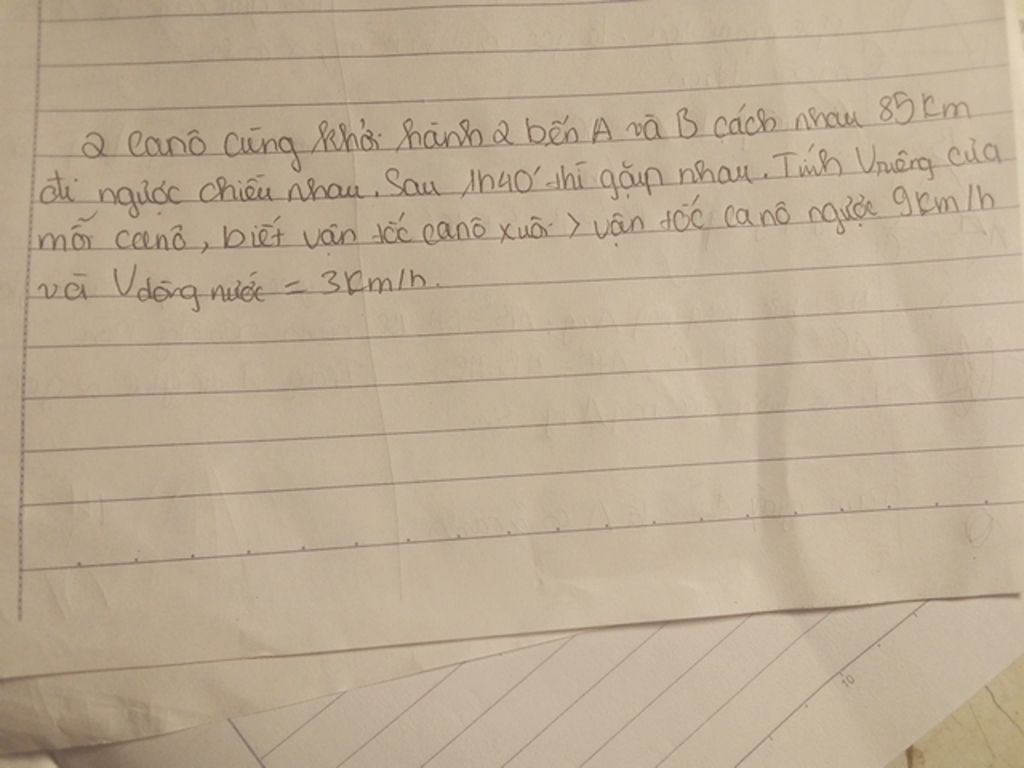 2 Canô cùng khởi hành 2 bến A và B cách nhau 85km
đi ngược chiều nhau. Sau 1h40' thì gặp nhau. Tính Vriêng của
mỗi canô, biết vận tốc canô xuôi > vận tốc canô ngược 9km/h
và Vdòng nước = 3km/h.
10